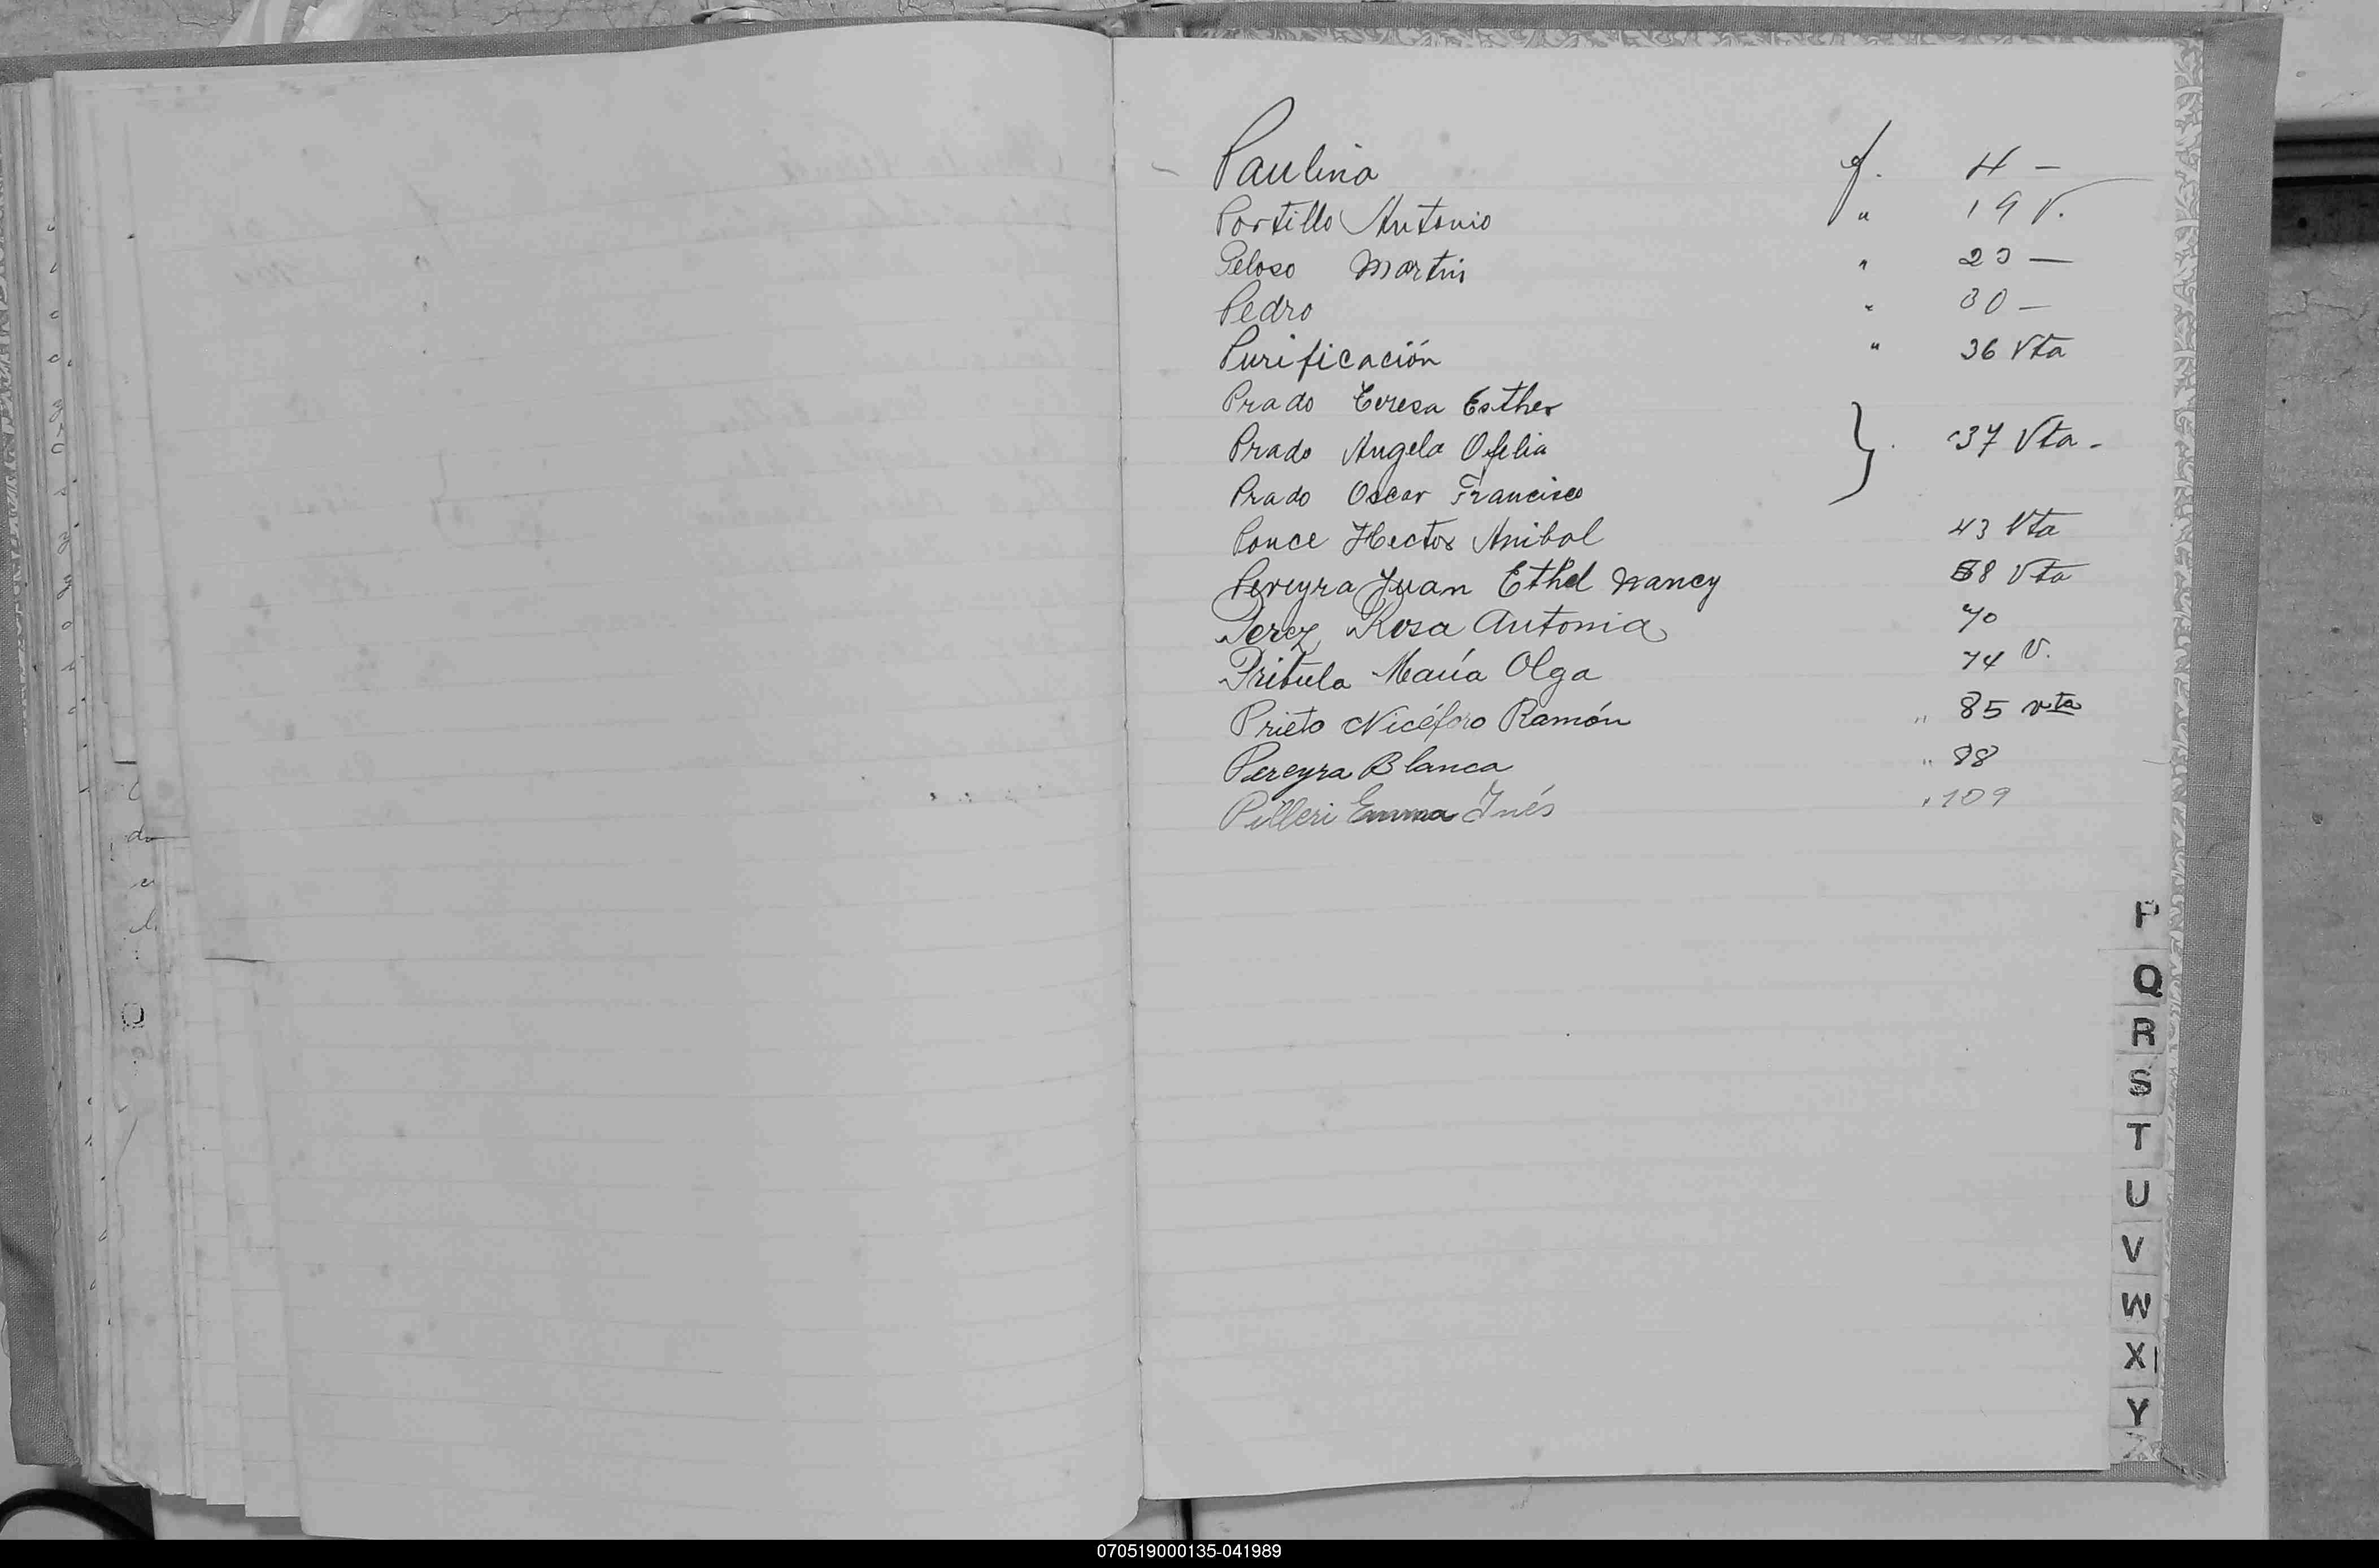 Paulina f. 4 —
Portillo Antonio " 19 V.
Peloso Martin " 23 —
Pedro " 30 —
Purificación " 36 Vta
Prado Teresa Esther
Prado Angela Ofelia } 37 Vta -
Prado Oscar Francisco
Ponce Hector Anibal 43 Vta
Pereyra Juan Ethel Nancy 58 Vta
Perez Rosa Antonia 70
Pribula María Olga 74 V.
Prieto Nicéforo Ramón " 85 vta
Pereyra Blanca " 98
Pilleri Emma Inés " 109
P
Q
R
S
T
U
V
W
X
Y
Z
070519000135-041989